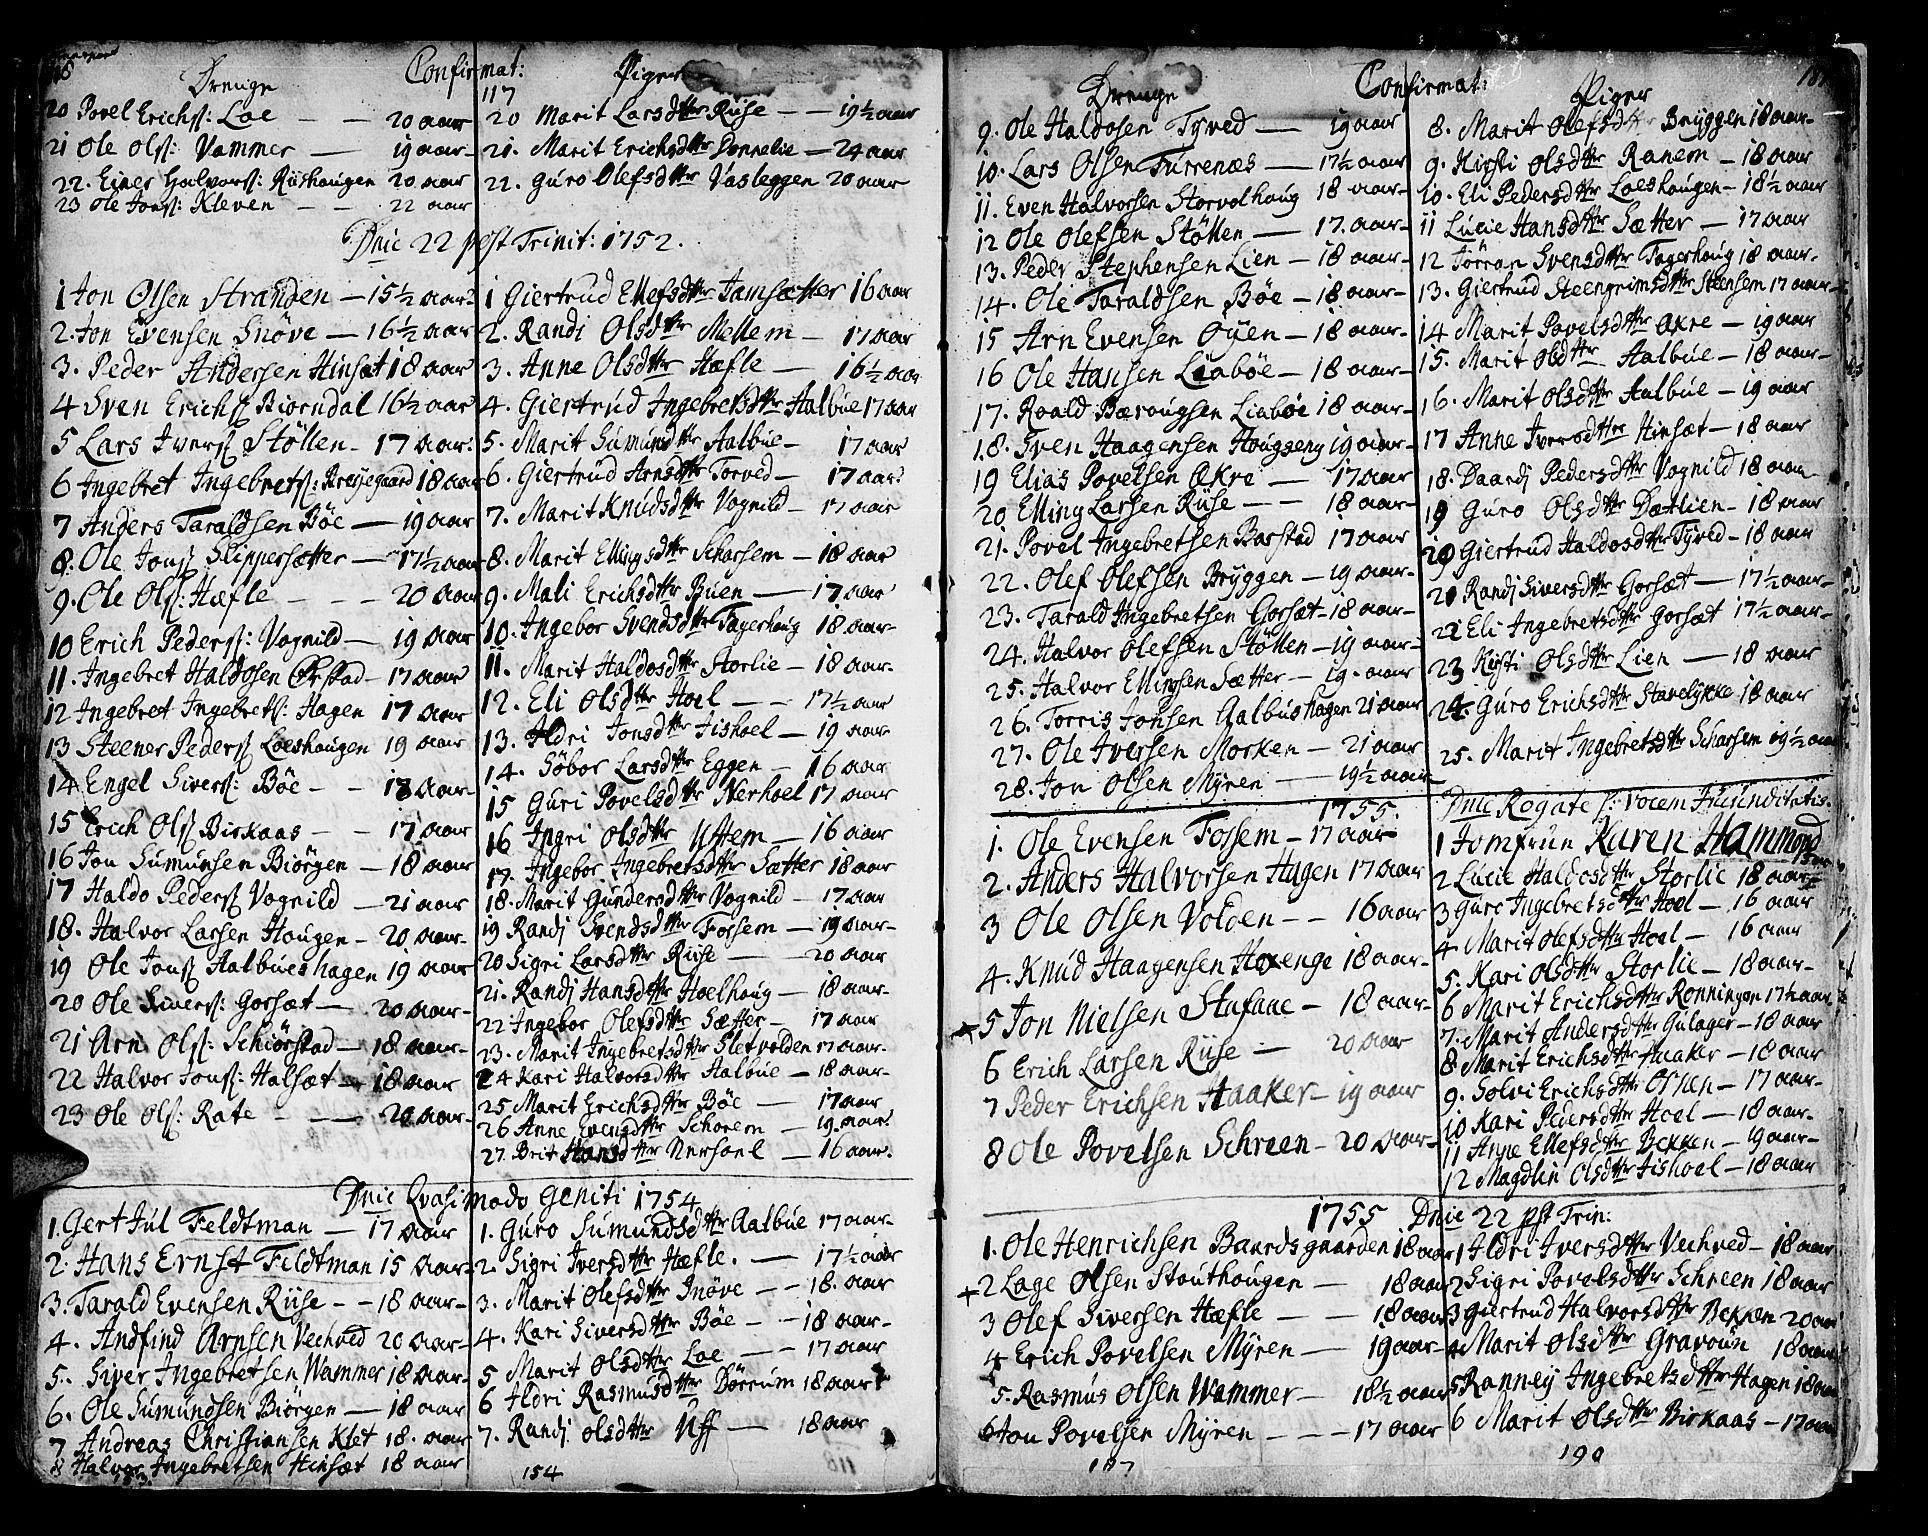 Confirmat:
Drenge
20 Povel Erichs: Loe — — 20 aar
21 Ole Ols: Vammer — 19 aar
22. Einer Halvors: Riishaugen 20 aar
23 Ole Jons: Kleven — — 22 aar
Piger
117
20 Marit Larsdttr Riise — — 19½ aar
21. Marit Erichsdttr Donnelie — 24 aar
22. Guro Olefsdttr Vasleggen 20 aar
Dnic 22 post Trinit: 1752.
1 Jon Olsen Stranden — 15½ aar
2. Jon Evensen Snöve — 16½ aar
3. Peder Andersen Hinsæt 18 aar
4 Sven Erichs Biörndal 16½ aar
5 Lars Ivers Stöllen — 17 aar
6 Ingebret Ingebrets: 18 aar
7 Anders Taraldsen Böe — 19 aar
8. Ole Jons Slippersætter — 17½ aar
9. Ole Ols: Hæfle — — — 20 aar
10 Erich Peders: Vognild — 19 aar
11. Ingebret Haldosen Ørstad — 17 aar
12 Ingebret Ingebrets: Hagen 17 aar
13 Steener Peders Loeshougen 19 aar
14 Engel Sivers: Böe — — 18 aar
15 Erich Ols Birkaas — — 17 aar
16 Jon Sumunsen Biörgen — 18 aar
17 Haldo Peders Vognild — 21 aar
18. Halvor Larsen Haugen — 20 aar
19 Ole Jons Aalbueshagen 19 aar
20 Ole Sivers: Gorsæt — 20 aar
21 Arn Ols: Schiörstad — 18 aar
22 Halvor Jons: Halsæt — 18 aar
23 Ole Ols: Rate — — — 20 aar
1 Giertrud Ellefsdttr Jamsætter 16 aar
2. Randi Olsdttr Mellem — 17 aar
3. Anne Olsdttr Hæfle — 16½ aar
4. Giertrud Ingebretsdttr Aalbue 17 aar
5. Marit Sumundttr Aalbue — 17 aar
6. Giertrud Arnsdttr Torved — 17 aar
7. Marit Knudsdttr Vognild — 17 aar
8. Marit Ellingsdttr Scharsem — 18 aar
9. Mali Erichsdttr Buen — 17 aar
10. Ingebor Svendsdttr Fagerhaug 18 aar
11. Marit Haldosdttr Storlie — 18 aar
12. Eli Olsdttr Hoel — — 17½ aar
13. Aldri Jonsdttr Fishoel — 19 aar
14. Söbor Larsdttr Eggen — 16 aar
15 Guri Povelsdttr Nerhoel 17 aar
16 Ingri Olsdttr Ustem — 16 aar
17. Ingebor Ingebretsdttr Sætter 18 aar
18. Marit Gundersdttr Vognild — 17 aar
19 Randi Svendsdttr Fossem — 19 aar
20 Sigri Larsdttr Riise — — 20 aar
21. Randi Hansdttr Hoelhaug — 18 aar
22 Ingebor Olefsdttr Sætter — 17 aar
23. Marit Ingebretsdttr Sletvolden 17 aar
24 Kari Halvorsdttr Aalbue — 18 aar
25 Marit Erichsdttr Böe — 17 aar
26 Anne Evensdttr Schorem — 19 aar
27. Brit Hansdttr Nerhoel — 16 aar
Dnic Qvasimodo Geniti 1754
1. Gert Jul Feldtman — 17 aar
2. Hans Ernst Feldtman 15 aar
3. Tarald Evensen Riise — — 18 aar
4. Andfind Arnsen Vechved 20 aar
5. Siver Ingebretsen Wammer 18 aar
6. Ole Sumundsen Biörgen — 18 aar
7 Andreas Christiansen Klet 18 aar
8 Halvor Ingebretsen Hinsæt 18 aar
153.
1. Guro Sumundsdttr Aalbue 17 aar
2. Sigri Iversdttr Hæfle. — 17½ aar
3. Marit Olefsdttr Snöve — 18 aar
4. Kari Siversdttr Böe — — 18 aar
5 Marit Olsdttr Loe — — 17 aar
6 Aldri Rasmusdttr Dörrum 18 aar
7. Randi Olsdttr Uff — 18 aar
154
Confirmat:
Drenge
9. Ole Haldosen Tyved — 19 aar
10. Lars Olsen Furrenæs — 17½ aar
11. Even Halvorsen Storvolhaug 18 aar
12 Ole Olefsen Stöllen — 17 aar
13. Peder Stephensen Lien — 18 aar
14. Ole Taraldsen Böe — 18 aar
15 Arn Evensen Öyen — 18 aar
16 Ole Hansen Liaböe — 18 aar
17. Roald Bærougsen Liaböe 18 aar
18. Sven Haagensen Hougseng 19 aar
19 Elias Povelsen Økre — 17 aar
20 Elling Larsen Riise — — 18 aar
21. Povel Ingebretsen Barstad 17 aar
22. Olef Olefsen Bryggen — 19 aar
23. Tarald Ingebretsen Gorsæt — 18 aar
24. Halvor Olefsen Stöllen — 19 aar
25. Halvor Ellingsen Sætter — 19 aar
26. Torris Jonsen Aalbushagen 21 aar
27. Ole Iversen Morken — 21 aar
28. Jon Olsen Myren — 19½ aar
Piger
8. Marit Olefsdttr Bryggen 18 aar
9. Kirsti Olsdttr Ranem — 18 aar
10. Eli Pedersdttr Loeshaugen — 18½ aar
11 Lucie Hansdttr Sætter — 17 aar
12 Jörran Svensdttr Fagerhaug 18 aar
13. Giertrud Steengrimsdttr Steensem 17 aar
14 Marit Povelsdttr Økre — 19 aar
15. Marit Olsdttr Aalbue — 18 aar
16. Marit Olsdttr Aalbue — 19 aar
17 Anne Iversdttr Hinsæt — 18 aar
18. Baardj Pedersdttr Vognild 18 aar
19 Guro Olsdttr Dætlien — 18 aar
20 Giertrud Haldosdttr Tyved — 18 aar
21 Randi Siversdttr Gorsæt — 17½ aar
22 Eli Ingebretsdttr Gorsæt 17½ aar
23 Kirsti Olsdttr Lien — 18 aar
24. Guro Erichsdttr Stavelykke 18 aar
25. Marit Ingebretsdttr Scharsem 19½ aar
1755. Dnic Rogate s: vocem Jucunditatis.
1. Ole Evensen Fossem — 17 aar
2. Anders Halvorsen Hagen 17 aar
3 Ole Olsen Volden — — 16 aar
4. Knud Haagensen Havenge 18 aar
5 Jon Nielsen Stafaae — 18 aar
6 Erich Larsen Riise — 20 aar
7 Peder Erichsen Haaker — 19 aar
8 Ole Povelsen Schreen — 20 aar
1 Jomfrun Karen Hammond
2 Lucie Haldosdttr Storlie 18 aar
3 Guro Ingebretsdttr Hoel — 16 aar
4 Marit Olefsdttr Hoel — 16 aar
5. Kari Olsdttr Storlie — 18 aar
6 Marit Erichsdttr Ronningen 17½ aar
7. Marit Andersdttr Gulager — 18 aar
8 Marit Erichsdttr Haaker — 18 aar
9. Solvi Erichsdttr — 17 aar
10 Kari Pedersdttr Hoel — 18 aar
11 Anne Ellefsdttr Bekken — 19 aar
12 Magdlin Olsdttr Fishoel — 18 aar
1755 Dnic 22 pst Trin:
1. Ole Henrichsen Baardsgaarden 18 aar
2 Lage Olsen Stouthaugen — 18 aar
3 Olef Siversen Hæfle — — 18 aar
4 Erich Povelsen Myren — 19 aar
5. Rasmus Olsen Wammer — 18½ aar
6 Jon Povelsen Myren — — — 17 aar
1 Aldri Iversdttr Vechved — 18 aar
2 Sigri Povelsdttr Schreen 18 aar
3 Giertrud Halvorsdttr Bekken 20 aar
4 Marit Olsdttr Gravoun 18 aar
5 Ranney Ingebretsdttr Hagen 18 aar
6 Marit Olsdttr Birkaas — 17 aar
190